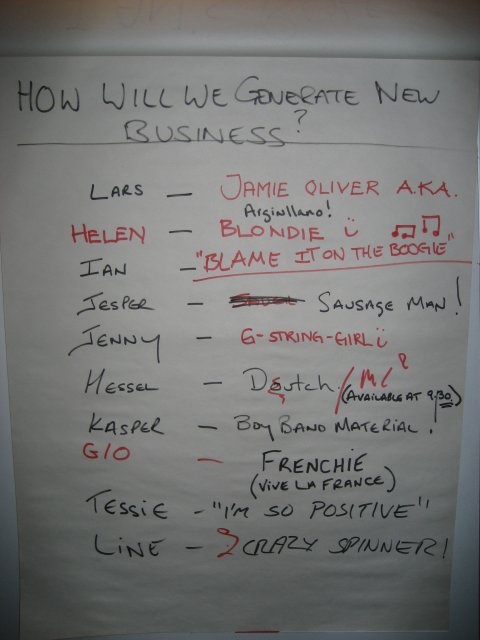 HOW WILL WE GENERATE NEW
BUSINESS?
LARS — JAMIE OLIVER A.K.A.
HELEN — BLONDIE
IAN — "BLAME IT ON THE BOOGIE"
JESPER — SAUSAGE MAN!
JENNY — G-STRING-GIRL
HESSEL — Deutch / MC?
(AVAILABLE AT 9.30)
KASPER — BOY BAND MATERIAL!
GIO — FRENCHIE
(VIVE LA FRANCE)
TESSIE - "I'M SO POSITIVE"
LINE - CRAZY SPINNER!